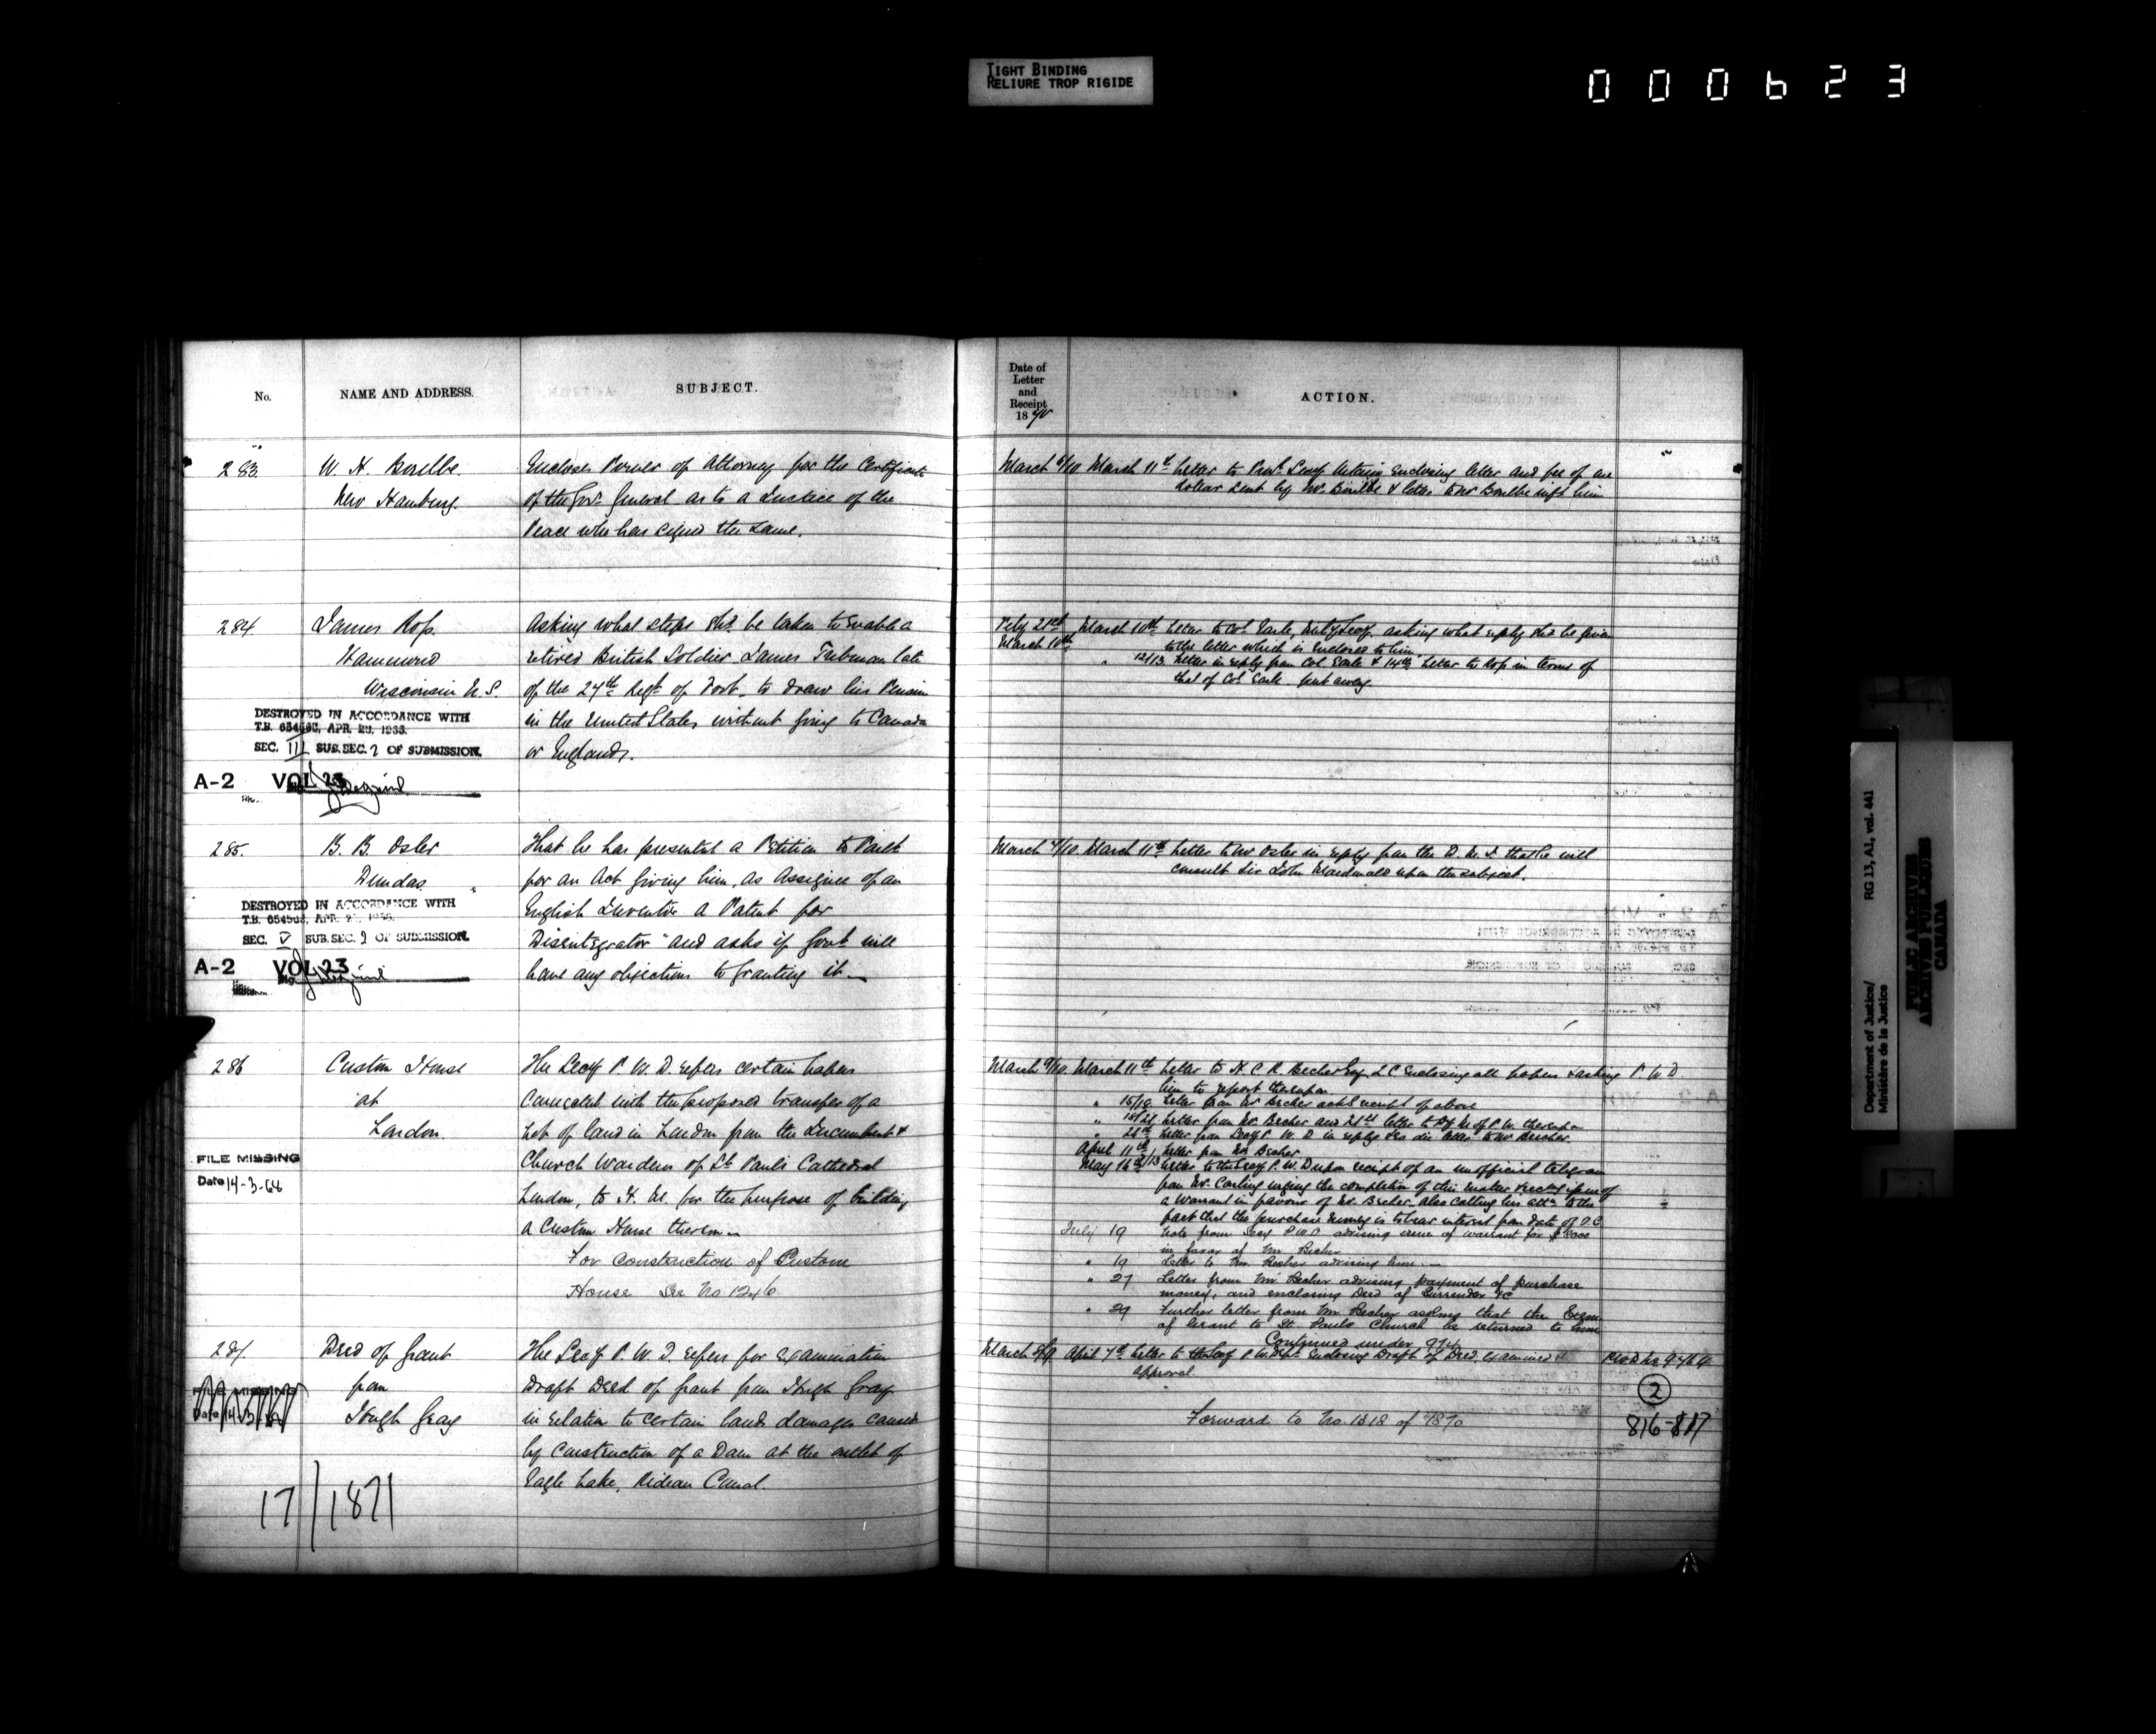 TIGHT BINDING
RELIURE TROP RIGIDE
000623
No.
NAME AND ADDRESS.
SUBJECT.
283
W. H. Boulbe
New Hamburg.
Encloses Power of Attorney for the Certificate
of the Gov. General as to a Justice of the
Peace who has signed the same.
284
James Ross
Hammond
Wisconsin U.S.
Asking what steps shd. be taken to enable a
retired British Soldier James Tubman late
of the 24th Regt. of Foot to draw his Pension
in the United States without going to Canada
or England.
DESTROYED IN ACCORDANCE WITH
T.B. 654563, APR. 29, 1966.
SEC. III SUB. SEC. 2 OF SUBMISSION.
A-2 VOL 23
285.
B. B. Osler
Dundas
That he has presented a Petition to Parlt
for an Act giving him, as Assignee of an
English Inventor a Patent for
Disintegrator" and asks if Govt. will
have any objections to granting it
DESTROYED IN ACCORDANCE WITH
T.B. 654563, APR.
SEC. V SUB. SEC. 2 OF SUBMISSION.
A-2 VOL 23
286
Custom House
at
London.
The Secy P. W. D. refers certain papers
connected with the proposed transfer of a
Lot of land in London from the Incumbent &
Church Wardens of St. Paul's Cathedral
London, to H. M. for the purpose of building
a Custom House thereon
For construction of Custom
House See No 1246
FILE MISSING
Date 14-3-68
287.
Deed of Grant
from
Hugh Gray
The Secy P. W. D. refers for examination
Draft Deed of Grant from Hugh Gray
in relation to certain lands damages caused
by construction of a Dam at the outlet of
Eagle Lake, Rideau Canal.
FILE MISSING
17/1871
Date of
Letter
and
Receipt
1870
ACTION.
March 9/10 March 11th Letter to Provl. Secy Ontario enclosing letter and fee of one
dollar sent by Mr. Boulbe & letter to Mr Boulbe infg him
Feby 21st
March 10th
March 10th Letter to Col. Earle, Mility Secy. asking what reply shd be given
to the letter which is enclosed to him
" 12/13 Letter in reply from Col Earle & 14th Letter to Ross in terms of
that of Col Earle. put away.
March 9/10 March 11th Letter to Mr Osler in reply from the D. M. J. that he will
consult Sir John Macdonald upon the subject.
March 9/10. March 11th Letter to H. C. R. Becher Esq. Q C enclosing all papers & asking
him to report thereupon
P. W. D.
" 15/18 Letter from Mr Becher ackg receipt of above
" Letter from Mr. Becher and 21st letter to of P. W. thereupon
" 28th Letter from Secy P. W. D in reply letter to Mr Becher
April 11th Letter from Mr Becher
May 16th Letter to the Secy P. W. D upon receipt of an unofficial telegram
from Mr. Carling urging the completion of this matter issue of
a Warrant in favour of Mr. Becher also calling his attn to the
fact that the purchase money is to bear interest from date of O. C
July 19 Note from Secy P W D advising issue of warrant for $
in favor of Mr Becher
" 19 Letter to Mr Becher advising him
" 27 Letter from Mr Becher advising payment of purchase
money, and enclosing Deed of Surrender &c
" 29 Further letter from Mr Becher asking that the
of Grant to St. Pauls Church be returned to him
Continued under
March 8/9. April 7th Letter to the Secy P. W. Dept. enclosing Draft of Deed, examined &
approval.
Forward to No. 1318 of 1870
2
816-817
Department of Justice/
Ministère de la Justice
RG 13, A1, vol. 441
PUBLIC ARCHIVES
ARCHIVES PUBLIQUES
CANADA